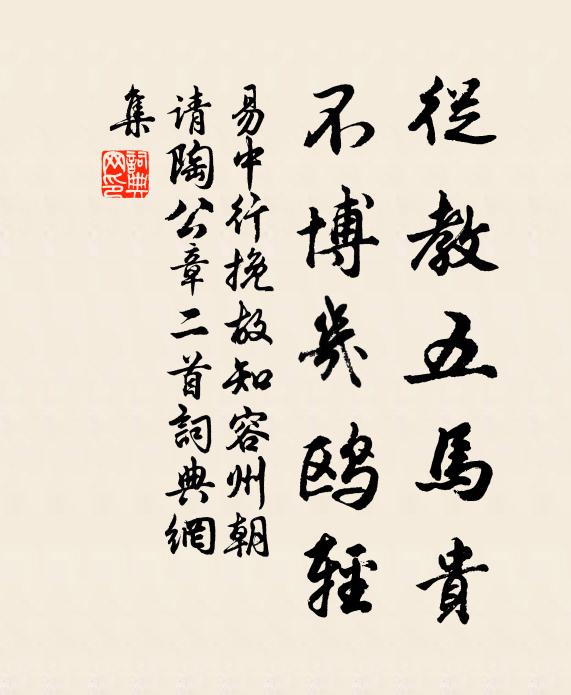 從教五馬貴
不博幾鷗輕
易中行挽故知容州朝
请陶公章二首詞典網
集
詞典网印